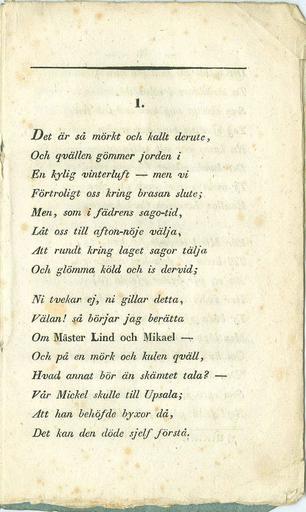 1.
Det är så mörkt och kallt derute,
Och qvällen gömmer jorden i
En kylig vinterluft — men vi
Förtroligt oss kring brasan slute;
Men, som i fädrens sago-tid,
Låt oss till afton-nöje välja,
Att rundt kring laget sagor tälja
Och glömma köld och is dervid;
Ni tvekar ej, ni gillar detta,
Välan! så börjar jag berätta
Om Mäster Lind och Mikael —
Och på en mörk och kulen qväll,
Hvad annat bör än skämtet tala? —
Vår Mickel skulle till Upsala;
Att han behöfde byxor då,
Det kan den döde sjelf förstå.